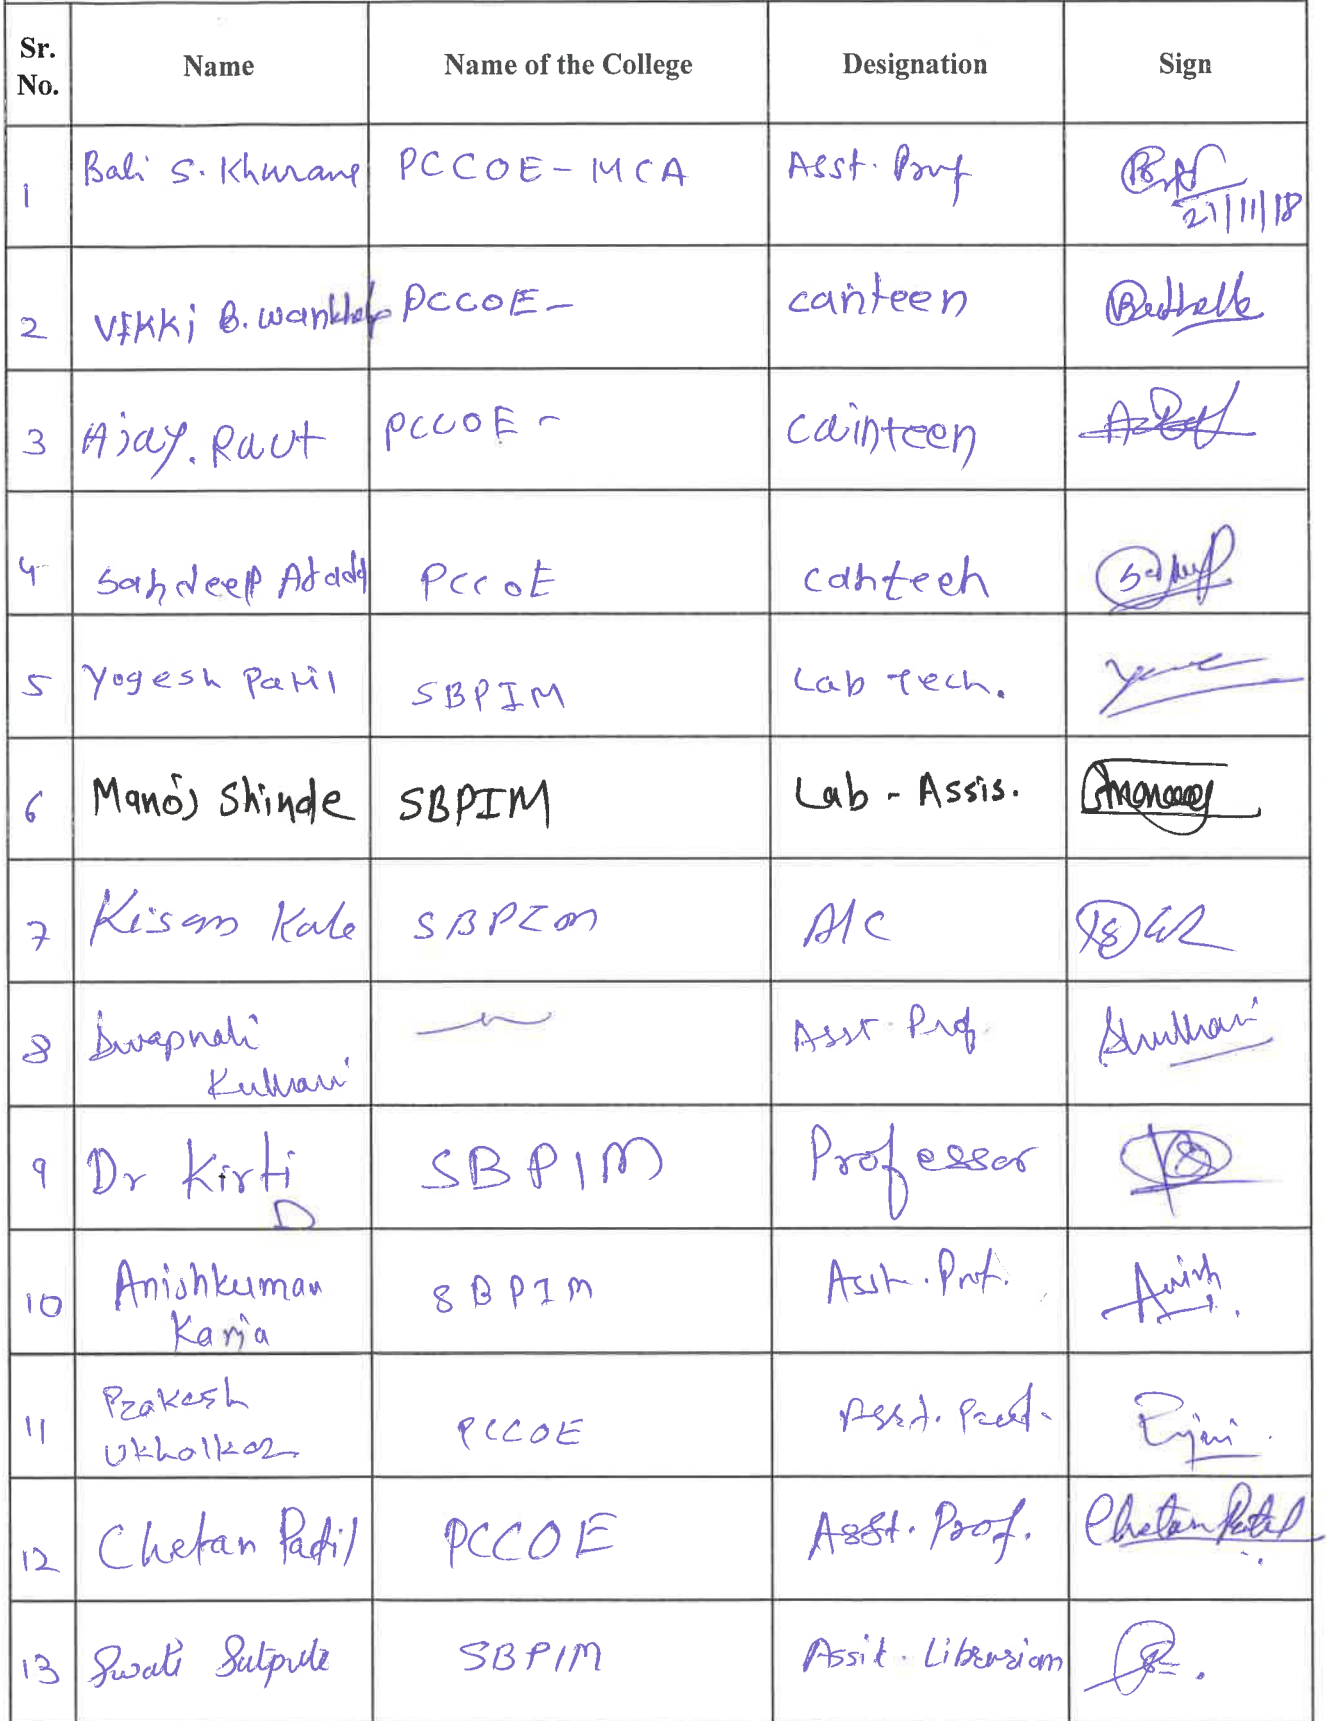 Sr. No. Name Name of the College Designation Sign
1 Bali S. Khurane PCCOE - MCA Asst. Prof 27/11/18
2 Vikki B. PCCOE - canteen
3 Ajay. Raut PCCOE - cainteen
4 Sandeep PCCOE canteen
5 Yogesh Patil SBPIM Lab Tech.
6 Manoj Shinde SBPIM Lab - Assis.
7 Kisan Kale SBPIM A/C
8 Swapnali Asst. Prof
Kulkarni
9 Dr Kirti SBPIM Professor
D
10 Anishkumar SBPIM Asst. Prof. Anish
Karia
11 Prakash PCCOE Asst. Prof.
Ukhalkar
12 Chetan Patil PCCOE Asst. Prof. Chetan Patil
13 Swati Satpute SBPIM Assit. Librariam